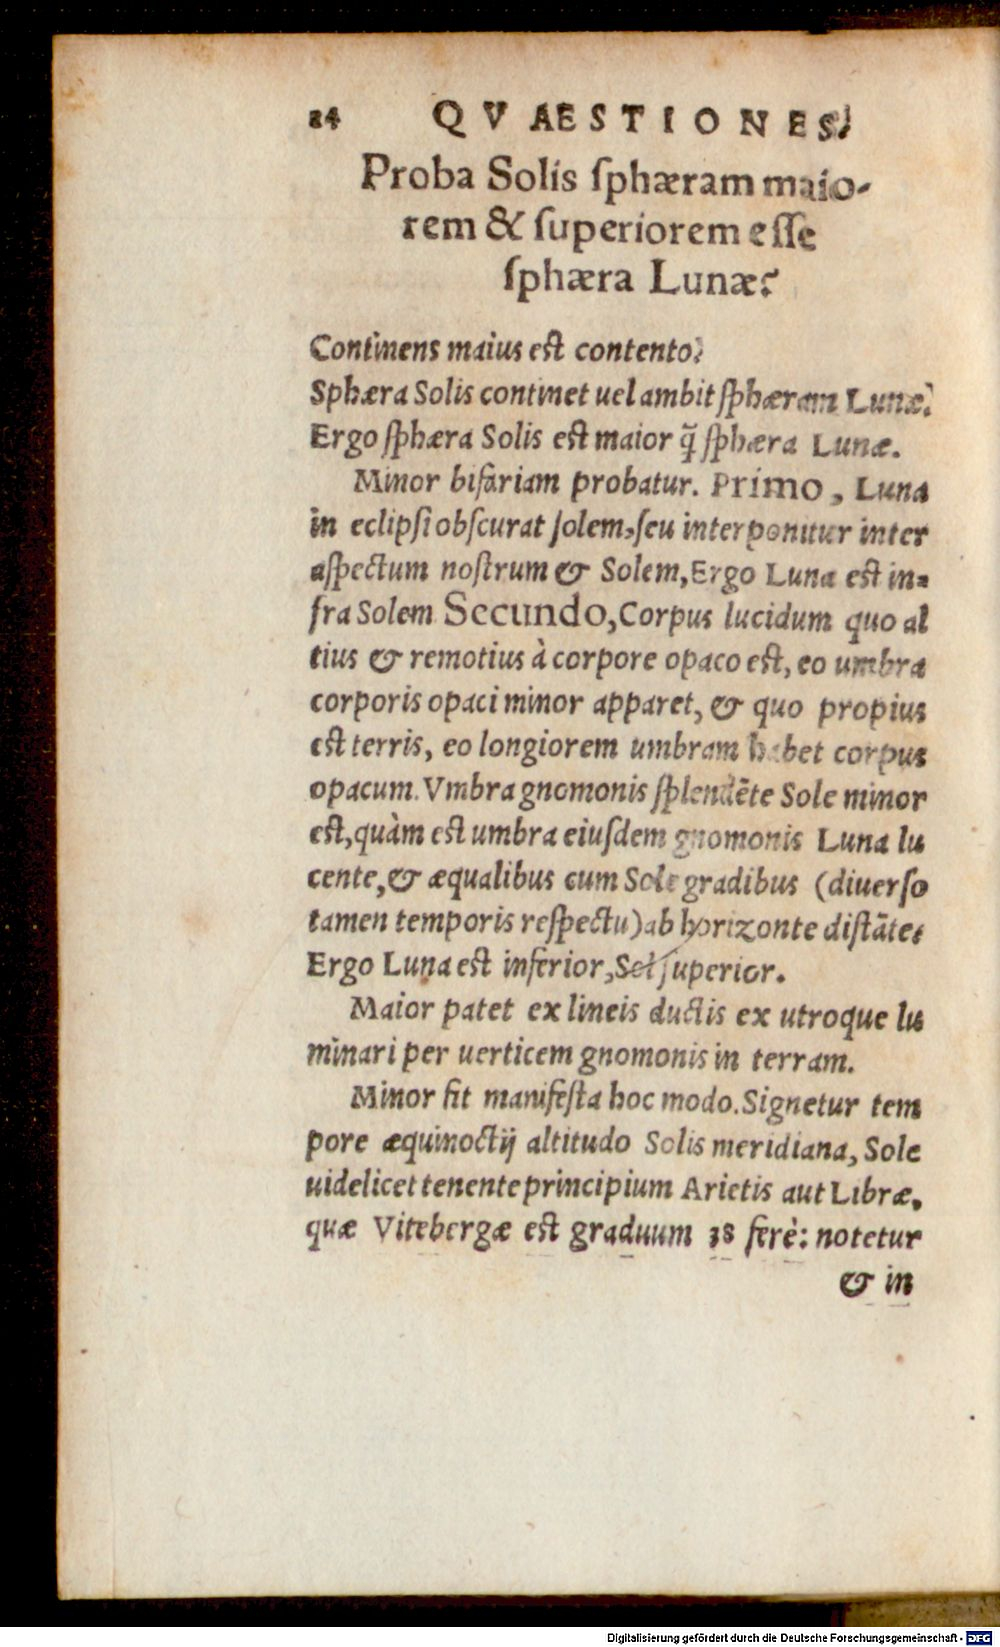 84 QVAESTIONES.
Proba Solis ſphæram maio-
rem & ſuperiorem eſſe
ſphæra Lunæ?
Continens maius est contento?
Sphæra Solis continet uel ambit ſphæram Lunæ?
Ergo ſphæra Solis est maior q̃ ſphæra Lunæ.
Minor bifariam probatur. Primo, Luna
in eclipſi obſcurat ſolem, ſeu interponitur inter
aſpectum noſtrum & Solem, Ergo Luna est in=
fra Solem Secundo, Corpus lucidum quo al
tius & remotius à corpore opaco est, eo umbra
corporis opaci minor apparet, & quo propius
est terris, eo longiorem umbram habet corpus
opacum. Vmbra gnomonis ſplendēte Sole minor
est, quàm est umbra eiuſdem gnomonis Luna lu
cente, & æqualibus cum Sole gradibus (diuerſo
tamen temporis reſpectu) ab horizonte diſtātes
Ergo Luna est inferior, Sol ſuperior.
Maior patet ex lineis ductis ex utroque lu
minari per uerticem gnomonis in terram.
Minor fit manifeſta hoc modo. Signetur tem
pore æquinoctij altitudo Solis meridiana, Sole
uidelicet tenente principium Arietis aut Libræ.
quæ Vitebergæ est graduum 38 ferè: notetur
& in
Digitalisierung gefördert durch die Deutsche Forschungsgemeinschaft - DFG